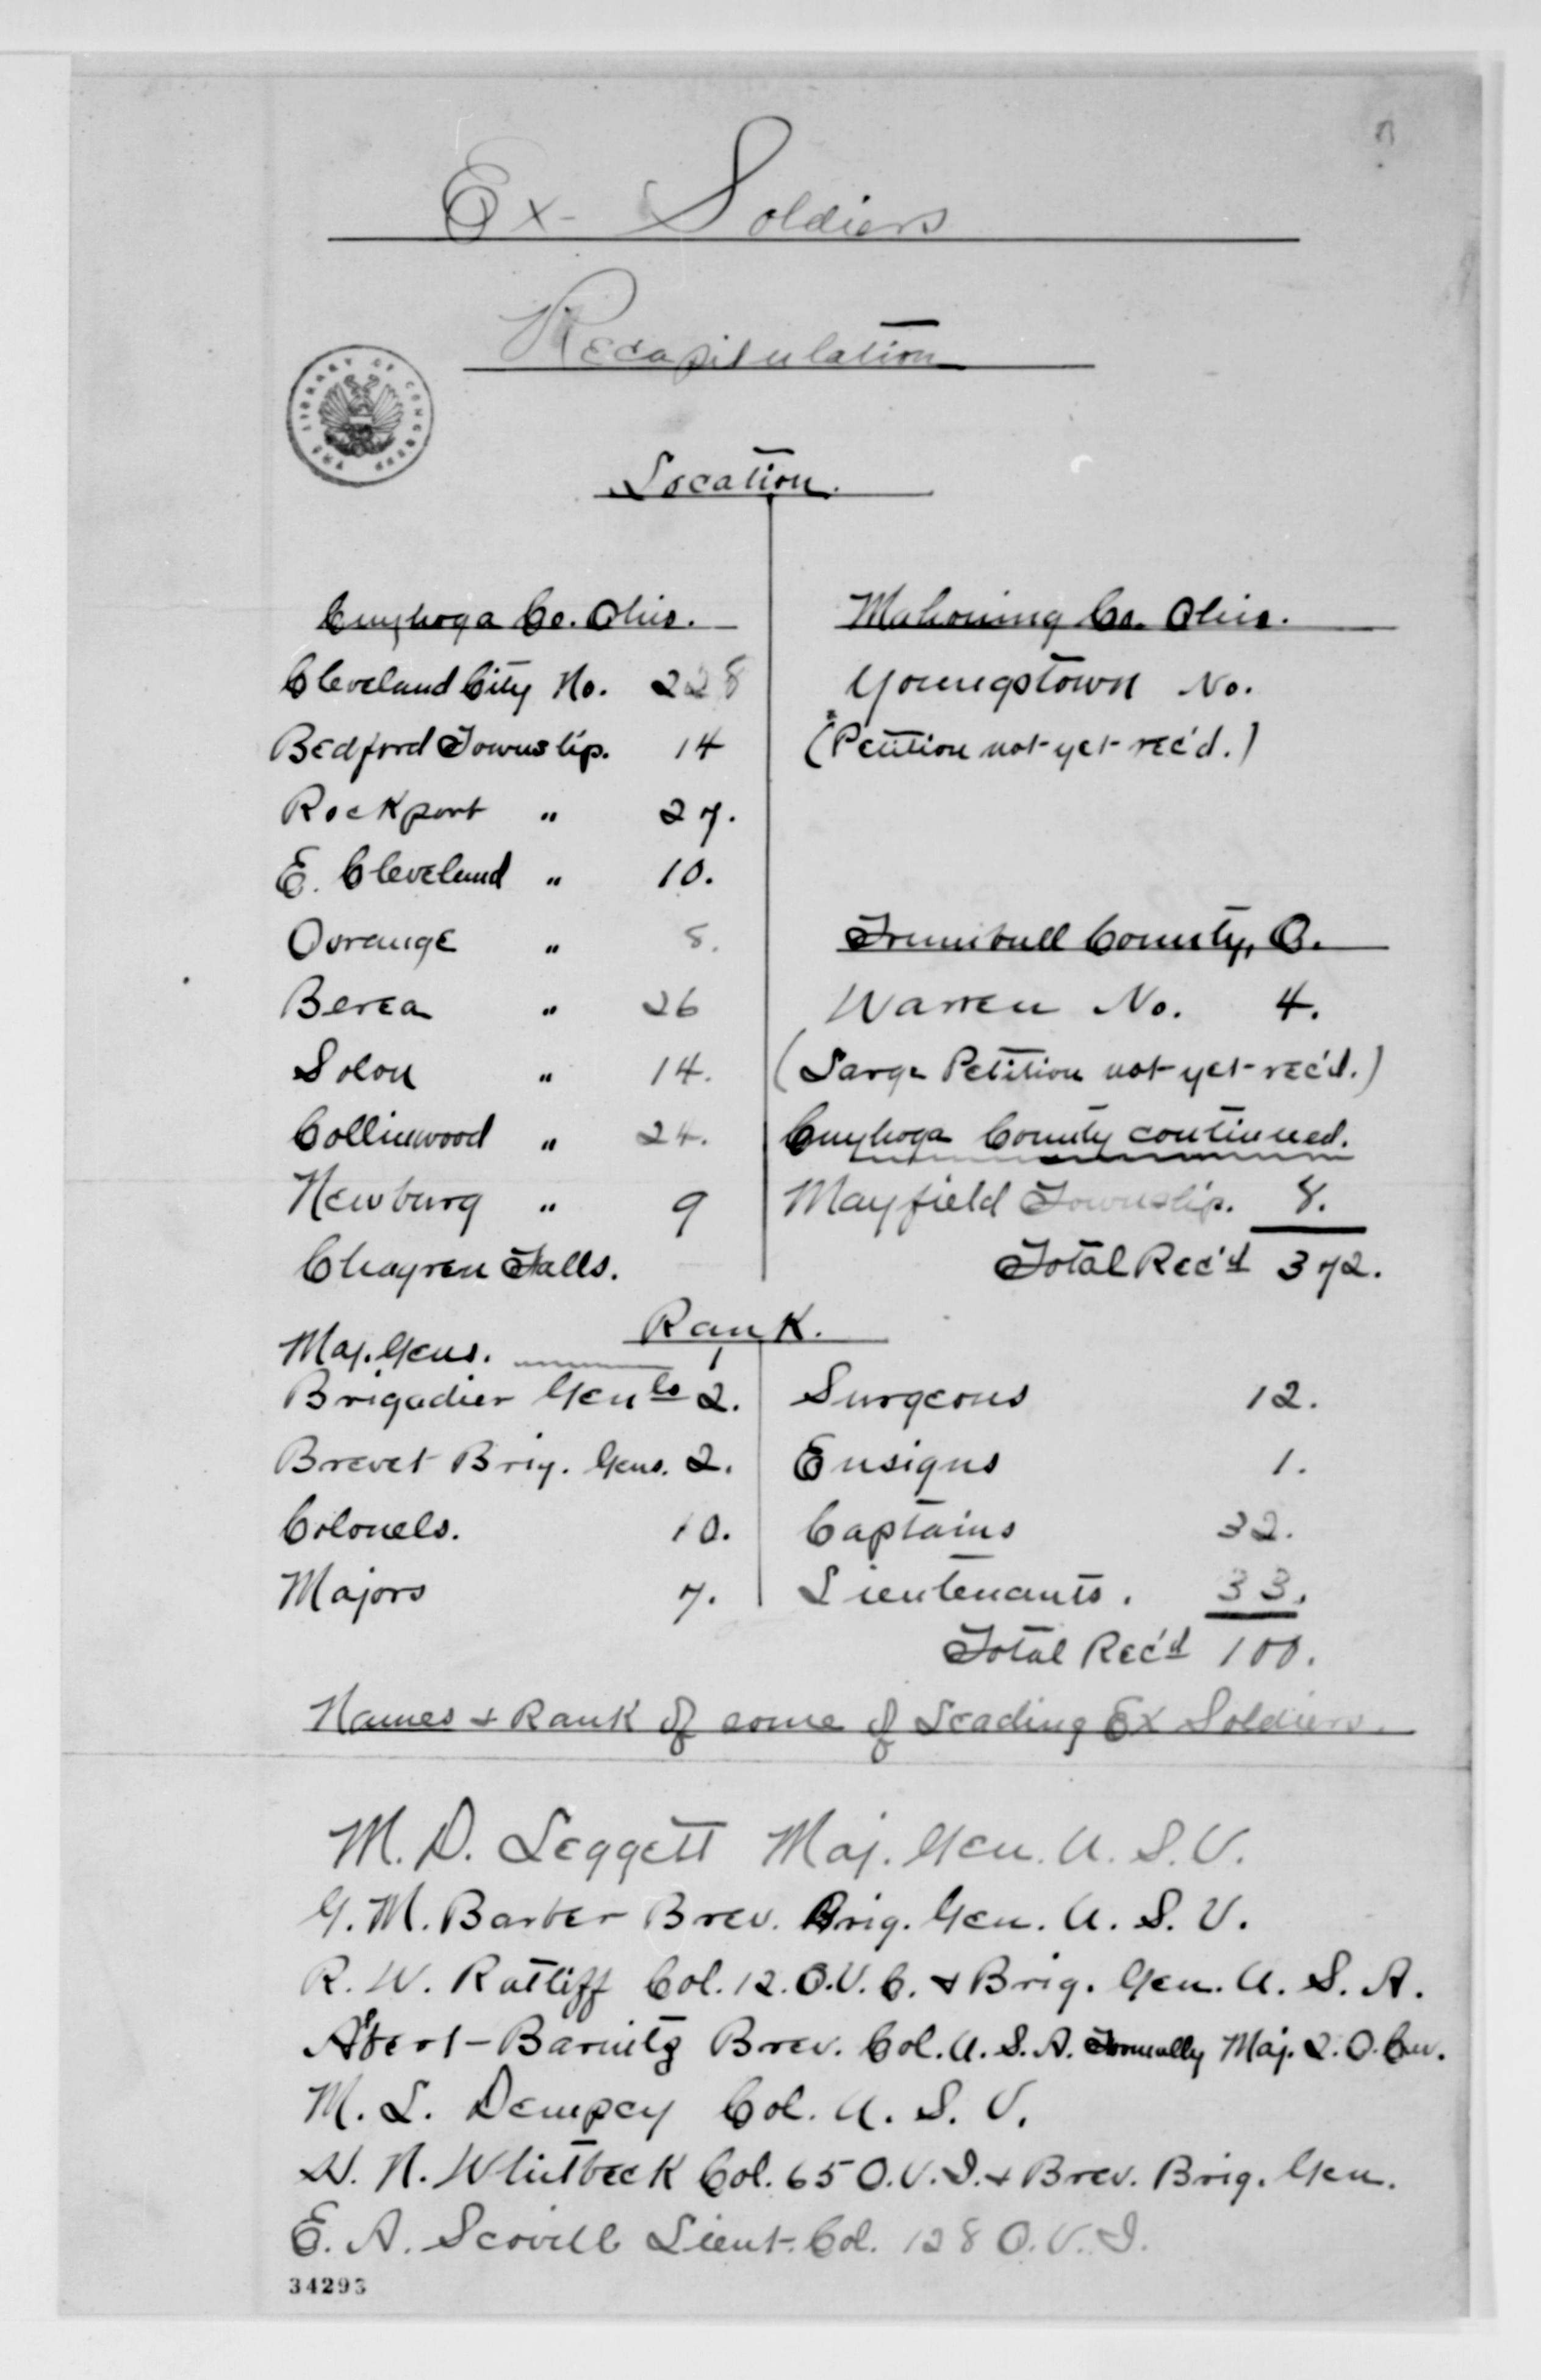 Ex- Soldiers
Recapitulation
THE LIBRARY OF CONGRESS
Location.
Cuyhoga Co. Ohio.
Cleveland City No. 228
Bedford Township. 14
Rockport " 27.
E. Cleveland " 10.
Oorange " 8.
Berea " 26
Solon " 14.
Collinwood " 24.
Newburg " 9
Chagren Falls.
Mahoning Co. Ohio.
Youngstown No.
(Petition not yet rec'd.)
Trumbull County, O.
Warren No. 4.
(Large Petition not yet rec'd.)
Cuyhoga County continued.
Mayfield Township. 8.
Total Rec'd 372.
Rank.
Maj. Gens. 1
Brigadier Genls 2.
Brevet Brig. Gens. 2.
Colonels. 10.
Majors 7.
Surgeons 12.
Ensigns 1.
Captains 32.
Lieutenants. 33.
Total Rec'd 100.
Names & Rank of some of Leading Ex Soldiers.
M. D. Leggett Maj. Gen. U. S. V.
G. M. Barber Brev. Brig. Gen. U. S. V.
R. W. Ratliff Col. 12. O. V. C. & Brig. Gen. U. S. A.
Albert Barnitz Brev. Col. U. S. A. Formally Maj. 2. O. Cav.
M. L. Dempcy Col. U. S. V.
H. N. Whitbeck Col. 65 O. V. I. & Brev. Brig. Gen.
E. A. Scovill Lieut. Col. 128 O. V. I.
34293